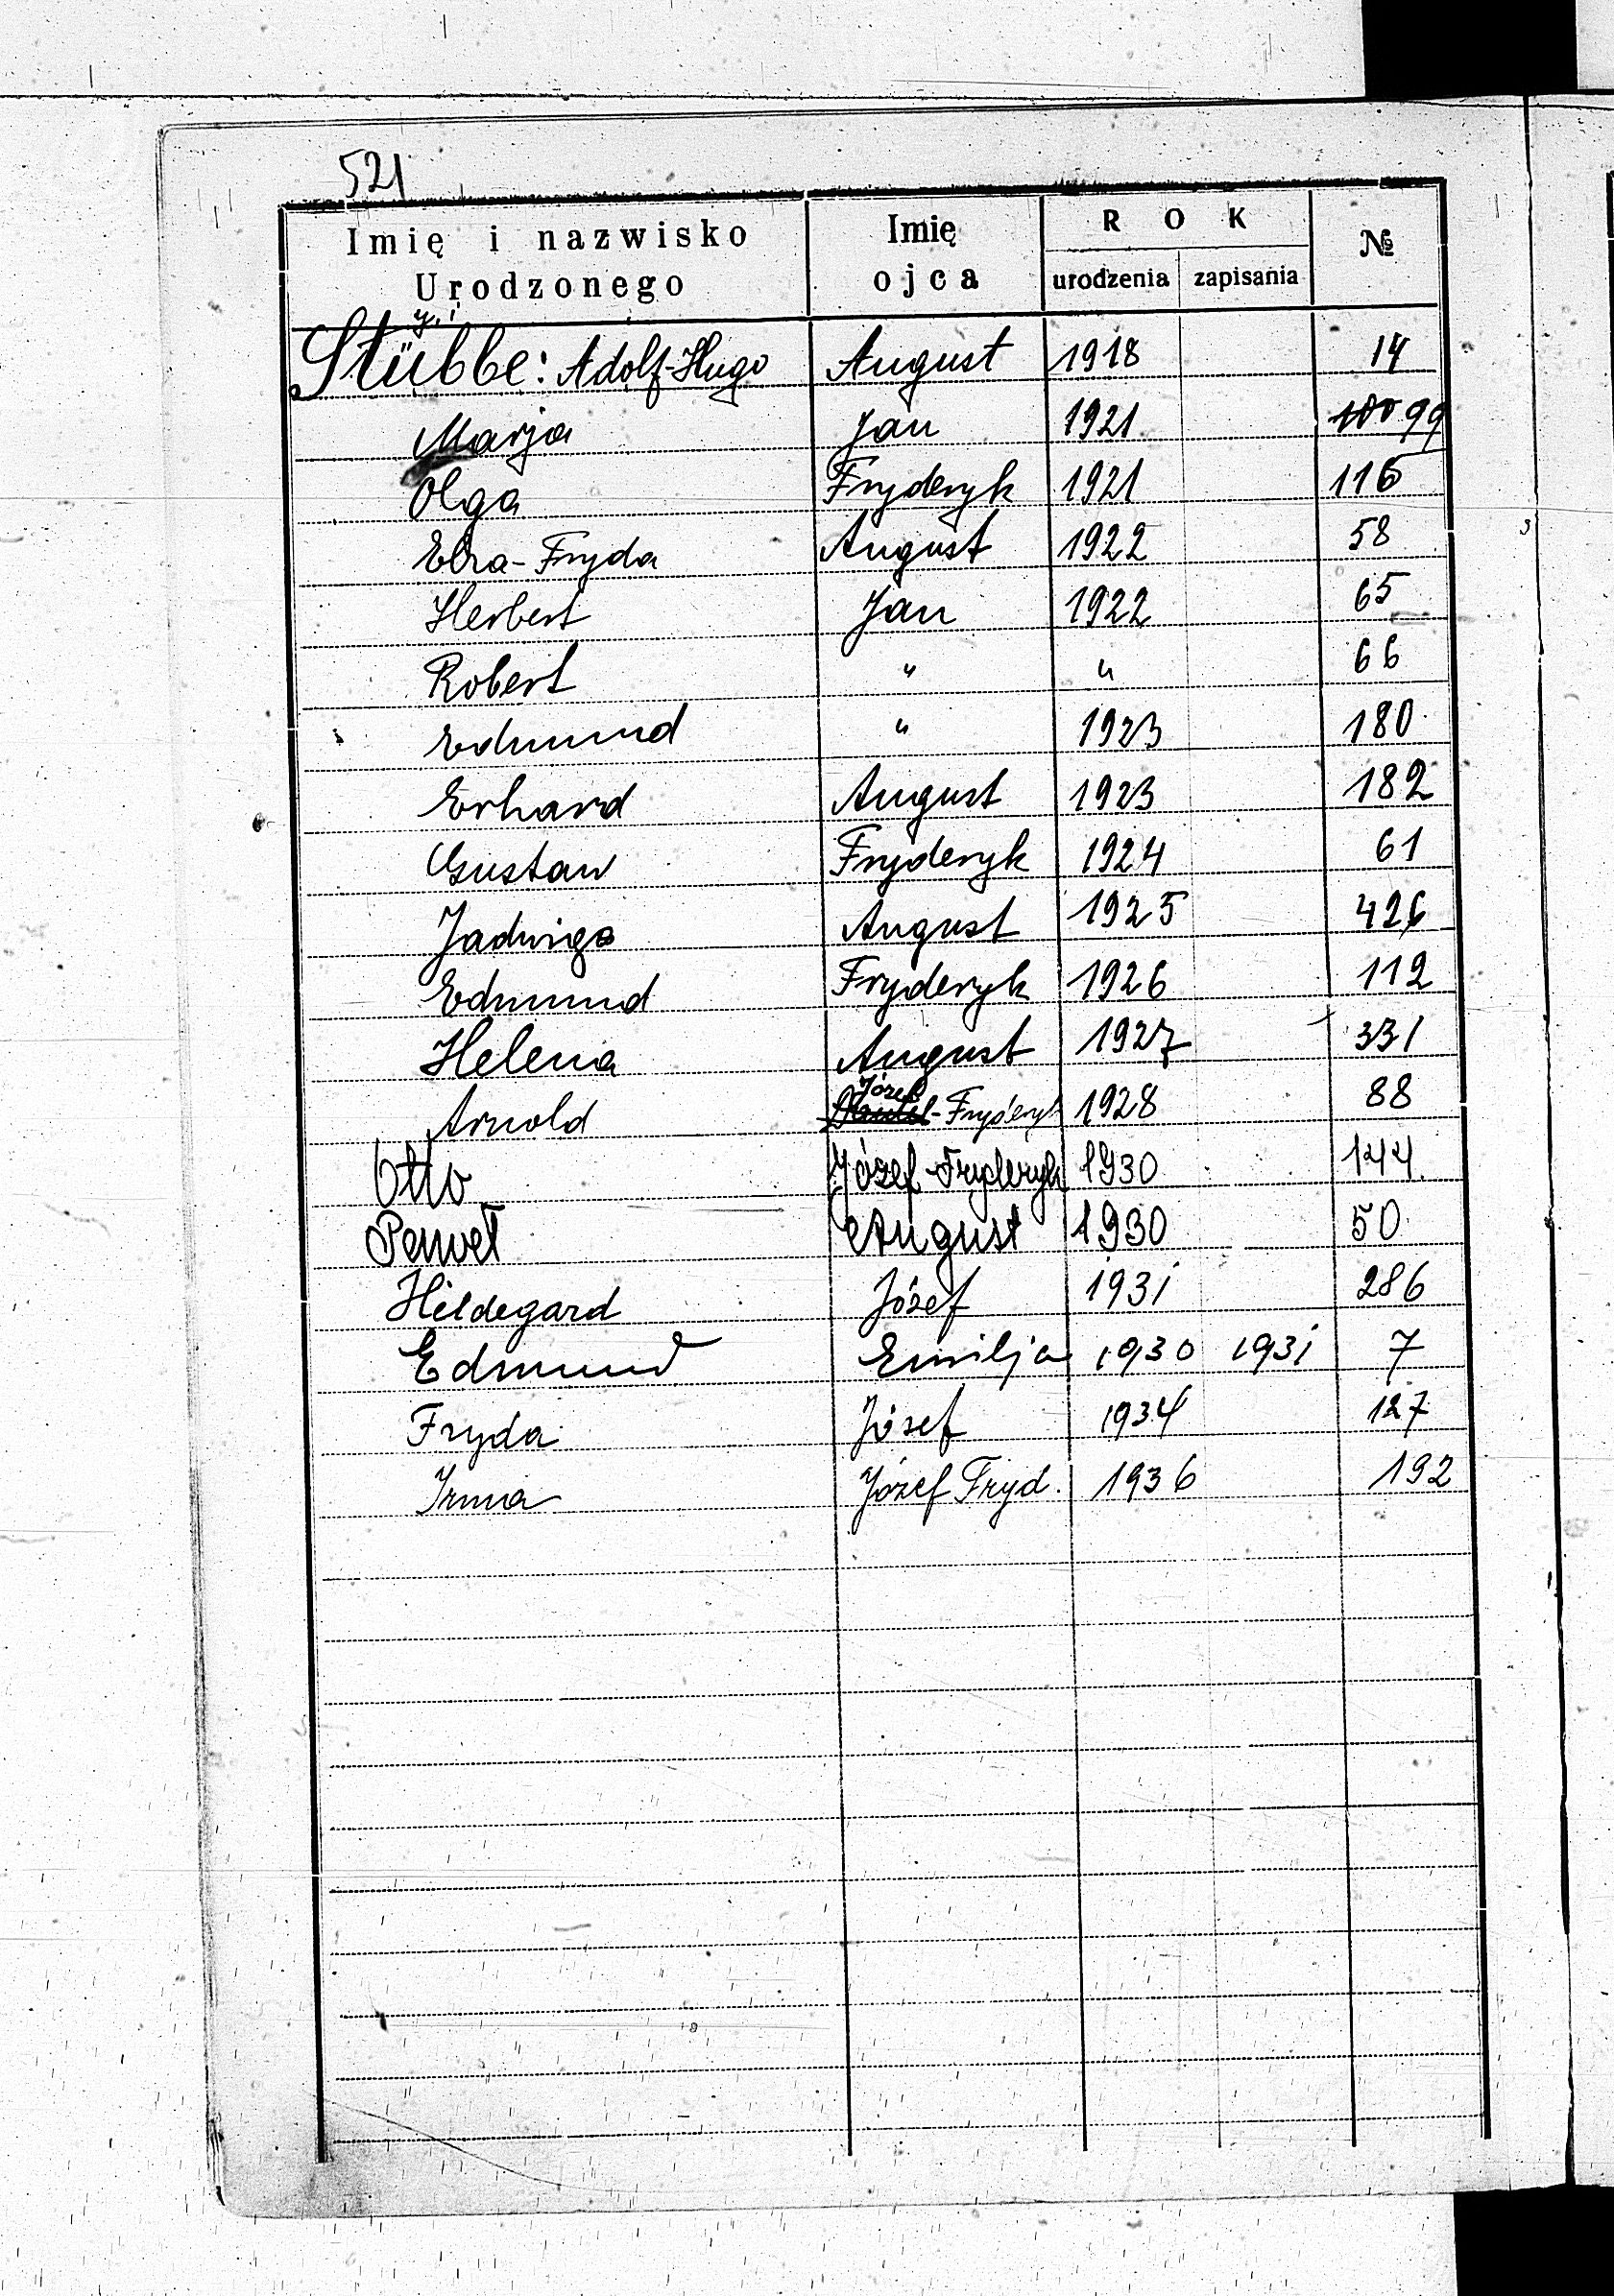 521
Imię i nazwisko Urodzonego Imię ojca ROK urodzenia zapisania №
y. i
Stübbe: Adolf-Hugo August 1918 14
Marja Jan 1921 100 99
Olga Fryderyk 1921 116
Elza-Fryda August 1922 58
Herbert Jan 1922 65
Robert " " 66
Edmund " 1923 180
Erhard August 1923 182
Gustaw Fryderyk 1924 61
Jadwiga August 1925 426
Edmund Fryderyk 1926 112
Helena August 1927 331
Józef
Arnold -Fryderyk 1928 88
Otto Józef-Fryderyk 1930 144
Paweł August 1930 50
Hildegard Józef 1931 286
Edmund Emilja 1930 1931 7
Fryda Józef 1934 127
Irma Józef Fryd. 1936 192